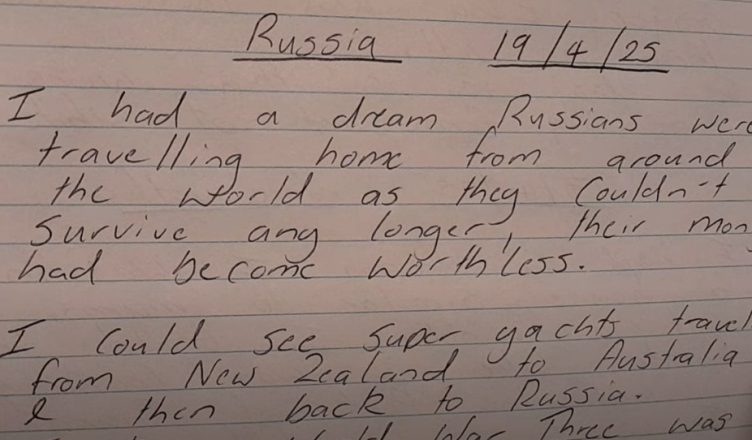 Russia 19/4/25
I had a dream Russians were
travelling home from around
the world as they couldn't
survive any longer, their mon
had become worthless.
I could see super yachts travel
from New Zealand to Australia
& then back to Russia.
War Three was